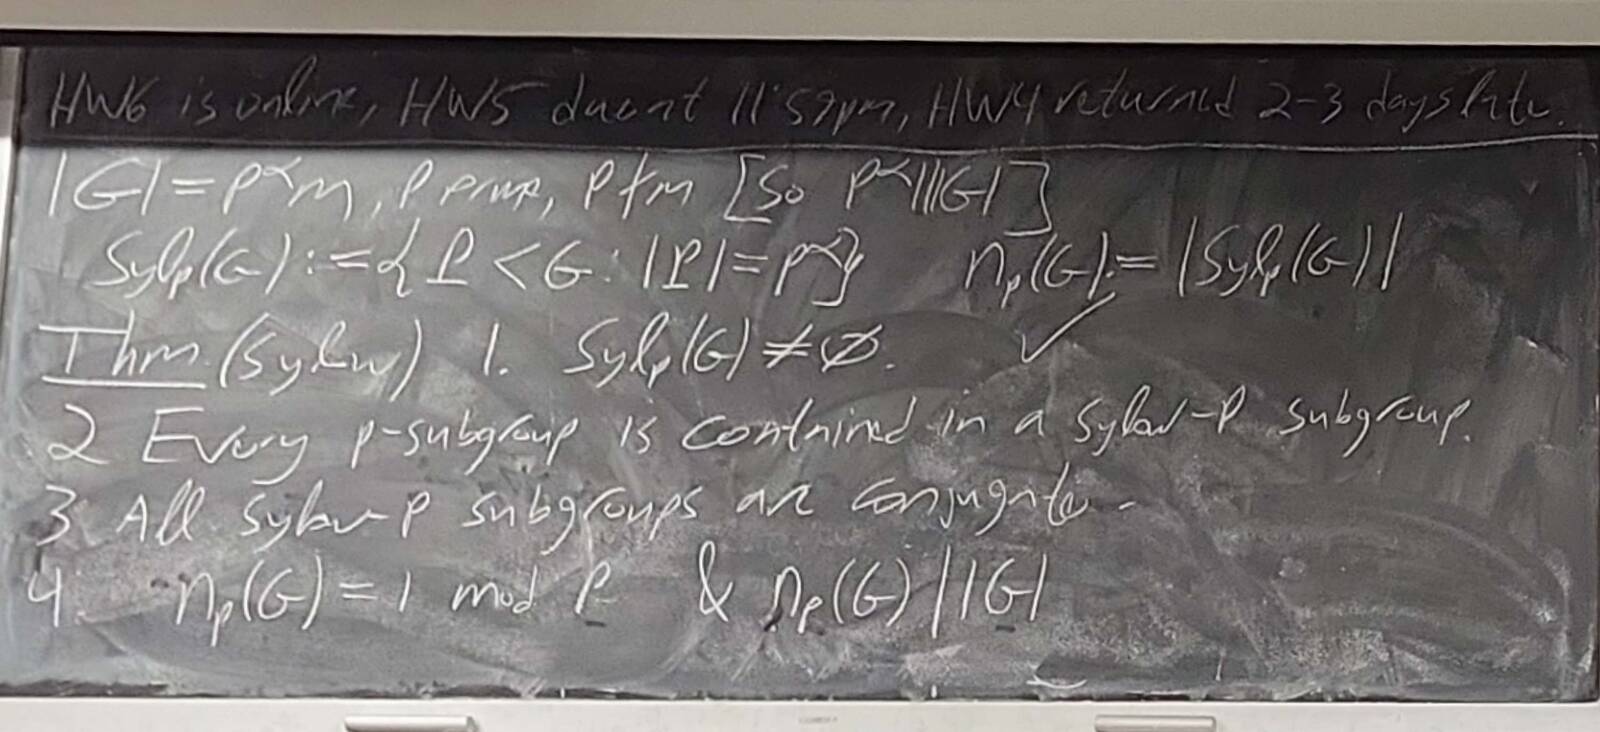 HW6 is online, HW5 due at 11:59pm, HW4 returned 2-3 days late.
|G| = p^α m, p prime, p ∤ m [So p^α || |G|]
Sylp(G) := {P < G : |P| = p^α} np(G) := |Sylp(G)|
Thm. (Sylow) 1. Sylp(G) ≠ ∅. ✓
2 Every p-subgroup is contained in a Sylow-P subgroup.
3 All Sylow-P subgroups are conjugate.
4. np(G) = 1 mod P & np(G) | |G|